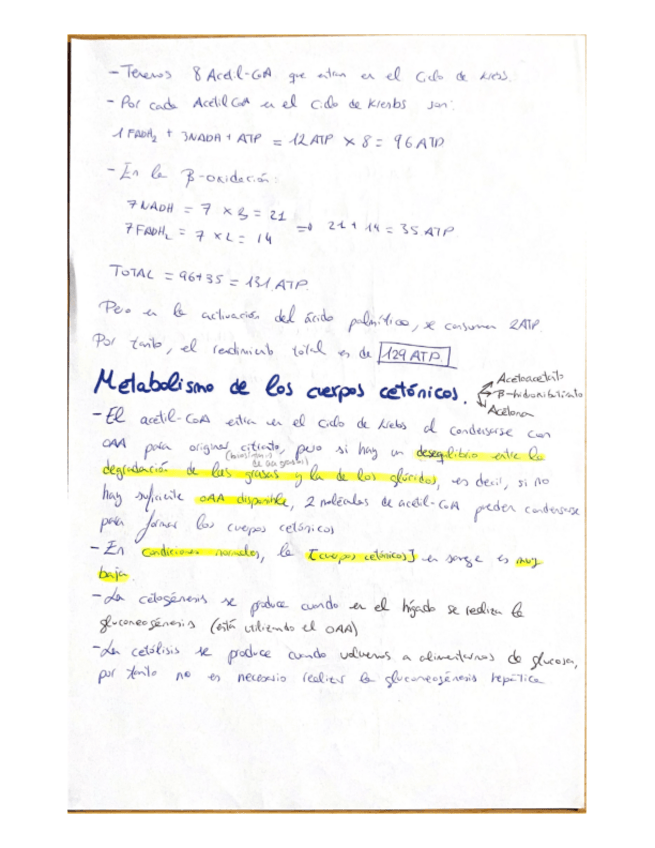 - Tenemos 8 Acetil-CoA que entran en el Ciclo de Krebs.
- Por cada Acetil CoA en el ciclo de Krebs son:
1 FADH₂ + 3NADH + ATP = 12 ATP × 8 = 96 ATP
- En la β-oxidación:
7 NADH = 7 × 3 = 21
7 FADH₂ = 7 × 2 = 14 ⇒ 21 + 14 = 35 ATP
TOTAL = 96+35 = 131 ATP.
Pero en la activación del ácido palmítico, se consumen 2ATP.
Por tanto, el rendimiento total es de 129 ATP.
Metabolismo de los cuerpos cetónicos. Acetoacetato
β-hidroxibutirato
Acetona
- El acetil-CoA entra en el ciclo de Krebs al condensarse con
OAA para originar citrato, pero si hay un desequilibrio entre la
degradación de las grasas y la de los glúcidos, es decir, si no
hay suficiente OAA disponible, 2 moléculas de acetil-CoA pueden condensarse
para formar los cuerpos cetónicos
- En condiciones normales, la [cuerpos cetónicos] en sangre es muy
baja.
- La cetogénesis se produce cuando en el hígado se realiza la
gluconeogénesis (está utilizando el OAA)
- La cetólisis se produce cuando volvemos a alimentarnos de glucosa,
por tanto no es necesario realizar la gluconeogénesis hepática